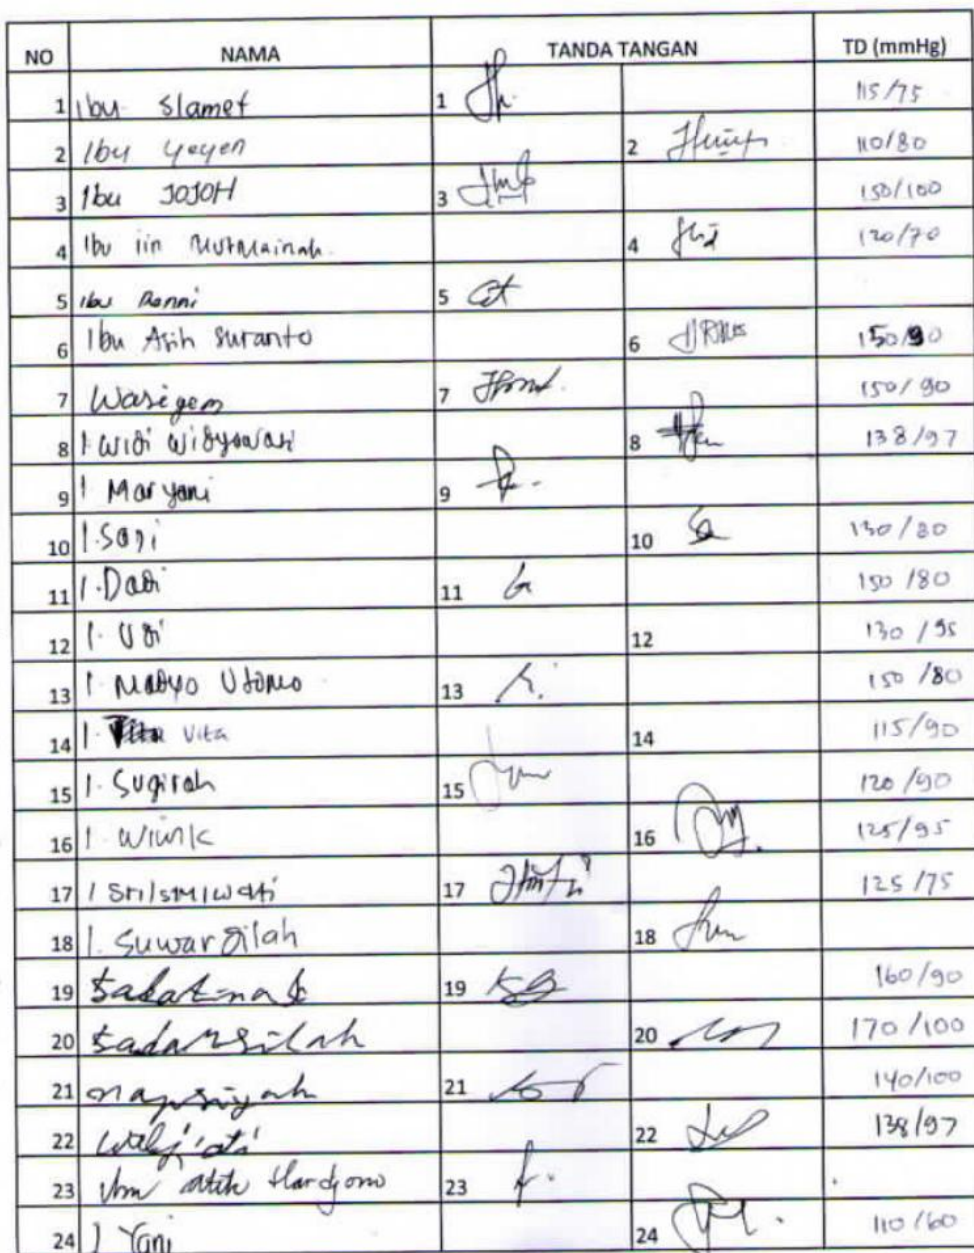 NO NAMA TANDA TANGAN TD (mmHg)
1 Ibu Slamet 1 115/75
2 Ibu Yeyen 2 110/80
3 Ibu JOJOH 3 150/100
4 Ibu iin Mutmainah. 4 120/70
5 Ibu Ronni 5
6 Ibu Asih Suranto 6 150/90
7 Wasigem 7 150/90
8 I. Widi Widyawati 8 138/97
9 I Maryani 9
10 I. Sari 10 130/80
11 I. Dadi 11 150/80
12 I. Udi 12 130/95
13 I. Madyo Utomo 13 150/80
14 I. Vita 14 115/90
15 I. Sugirah 15 120/90
16 I. Wiwik 16 125/95
17 I Sri Ismiwati 17 125/75
18 I. Suwardilah 18
19 19 160/90
20 20 170/100
21 21 140/100
22 22 138/97
23 Ibu Atik Hardjono 23
24 I Yani 24 110/60